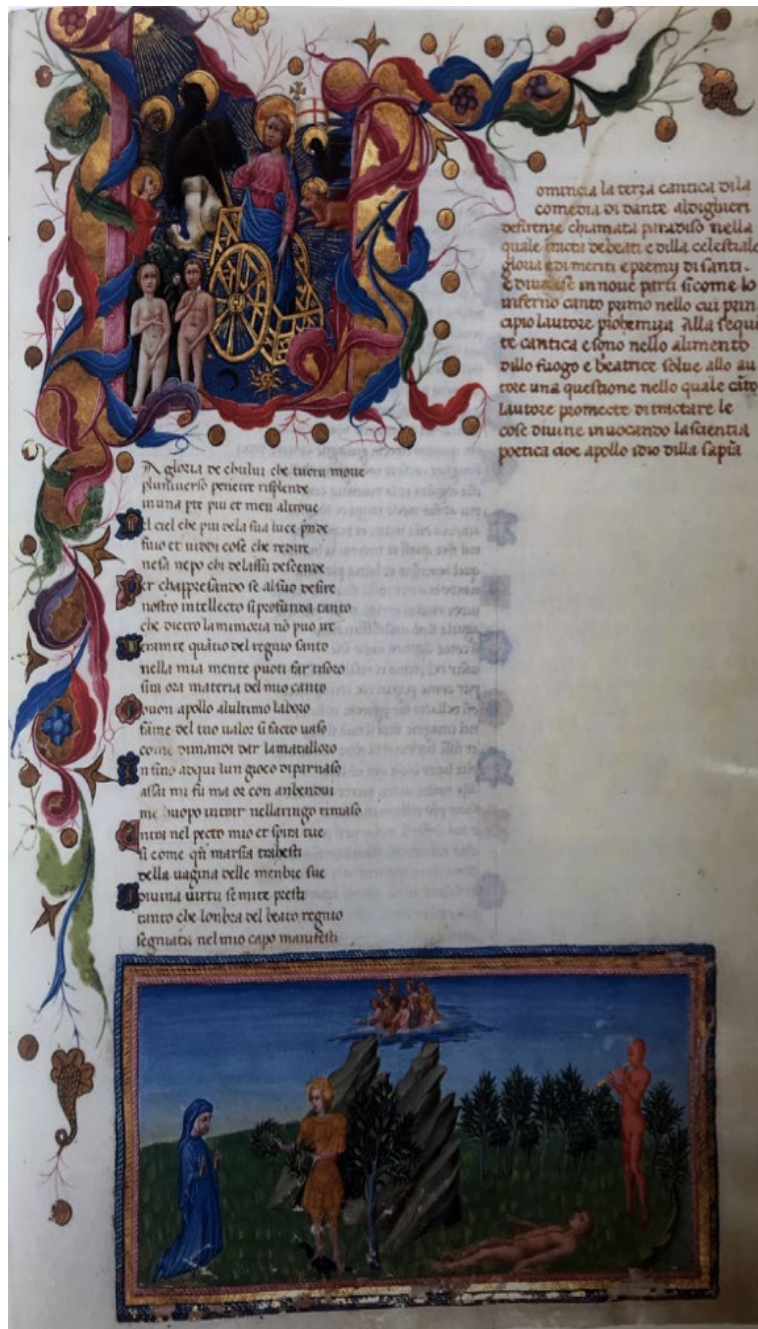 omincia la terza cantica dila
comedia di dante aldighieri
defirenze chiamata paradiso nella
quale tracta debeati e dilla celestiale
gloria e dimeriti e premij disanti.
E diuidese in noue parti sicome lo
inferno canto primo nello cui prin
cipio lautore prohemiza alla sequē
te cantica e sono nello alimento
dillo fuogo e beatrice solue allo au
tore una questione nello quale cāto
lautore promecte ditractare le
cose diuine inuocando la scientia
poetica cioe apollo idio dilla sapīa
A gloria de chului che tucto moue
pluniuerso penetre risplende
in una pte piu et men altroue
el ciel che piu dela sua luce pnde
fuio et uiddi cose che redire
ne sa ne po chi delassu descende
er chappresando se al suo desire
nostro intellecto si profunda tanto
che dietro la mimoria nō puo ire
eramte quātio del regnio santo
nella mia mente puoti far tisoro
sira ora materia del mio canto
buon apollo alultimo laboro
fāme del tuo ualor si facto uaso
come dimandi dar lamatalloro
n fino adqui lun gioco di parnaso
assai mi fu ma or con anbendui
me huopo intrar nellaringo rimaso
ntra nel pecto mio et spira tue
si come qñ marsia trahesti
della uagina delle menbre sue
diuina uirtu se mite presti
tanto che lonbra del beato regnio
segniata nel mio capo manifesti